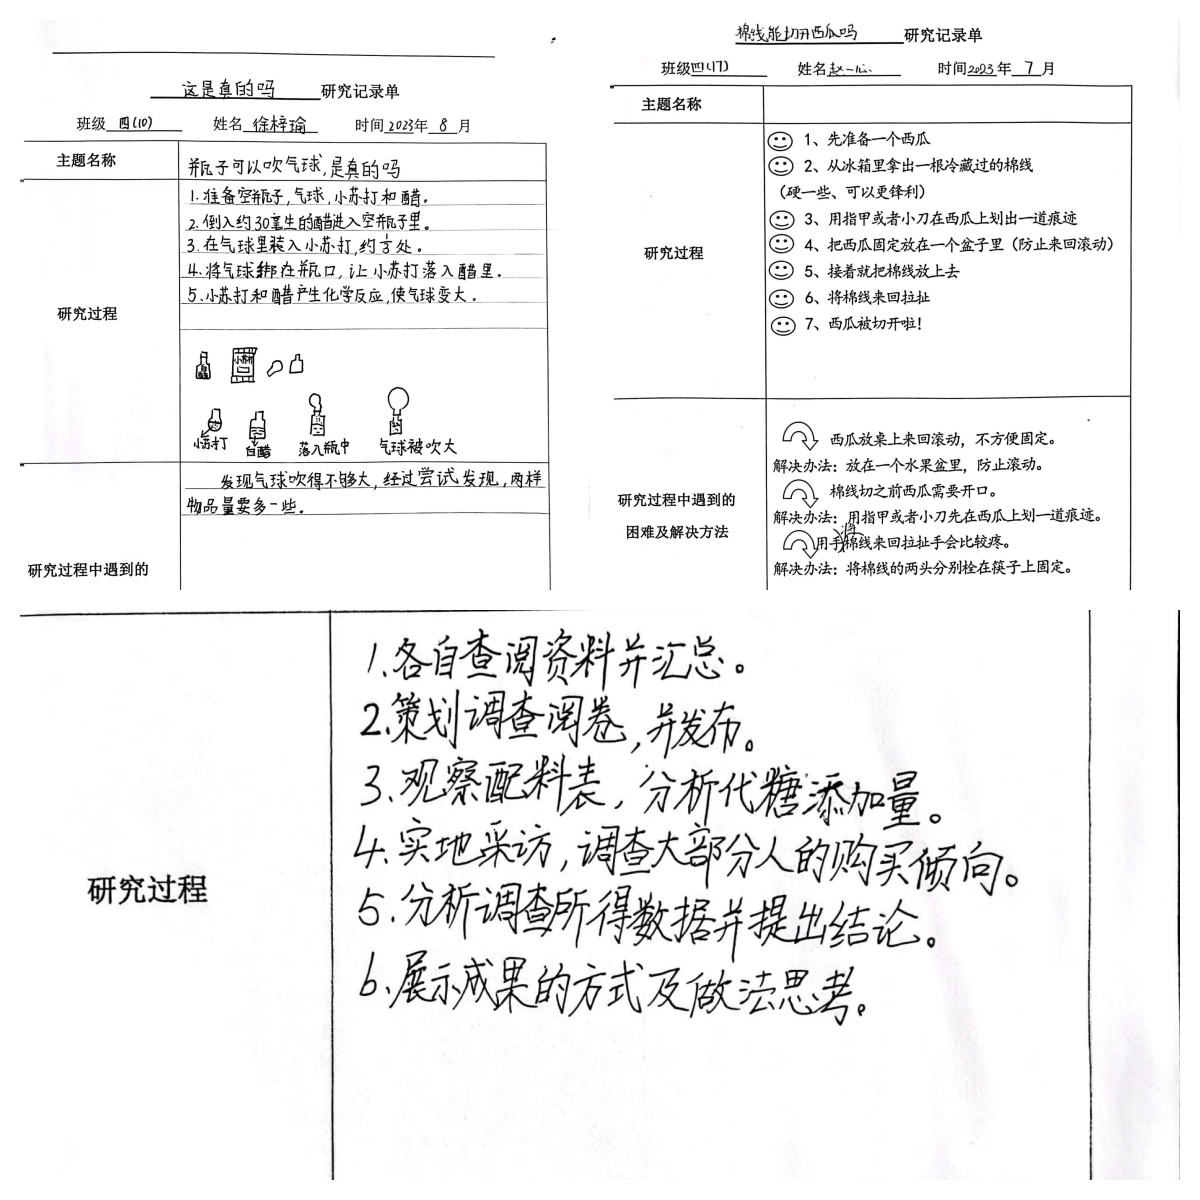 这是真的吗 研究记录单
班级 四(10) 姓名 徐梓瑜 时间 2023年 8 月
主题名称
瓶子可以吹气球,是真的吗
研究过程
1.准备空瓶子,气球,小苏打和醋。
2.倒入约30毫生的醋进入空瓶子里。
3.在气球里装入小苏打,约 处。
4.将气球绑在瓶口,让小苏打落入醋里。
5.小苏打和醋产生化学反应,使气球变大。
小苏打
小苏打 白醋 落入瓶中 气球被吹大
发现气球吹得不够大,经过尝试发现,两样
物品量要多一些。
研究过程中遇到的
棉线能切开西瓜吗 研究记录单
班级四(17) 姓名赵一心 时间2023年 7 月
主题名称
研究过程
1、先准备一个西瓜
2、从冰箱里拿出一根冷藏过的棉线
(硬一些、可以更锋利)
3、用指甲或者小刀在西瓜上划出一道痕迹
4、把西瓜固定放在一个盆子里(防止来回滚动)
5、接着就把棉线放上去
6、将棉线来回拉扯
7、西瓜被切开啦!
研究过程中遇到的
困难及解决方法
西瓜放桌上来回滚动,不方便固定。
解决办法:放在一个水果盆里,防止滚动。
棉线切之前西瓜需要开口。
解决办法:用指甲或者小刀先在西瓜上划一道痕迹。
用手将棉线来回拉扯手会比较疼。
解决办法:将棉线的两头分别栓在筷子上固定。
研究过程
1.各自查阅资料并汇总。
2.策划调查阅卷,并发布。
3.观察配料表,分析代糖添加量。
4.实地采访,调查大部分人的购买倾向。
5.分析调查所得数据并提出结论。
6.展示成果的方式及做法思考。